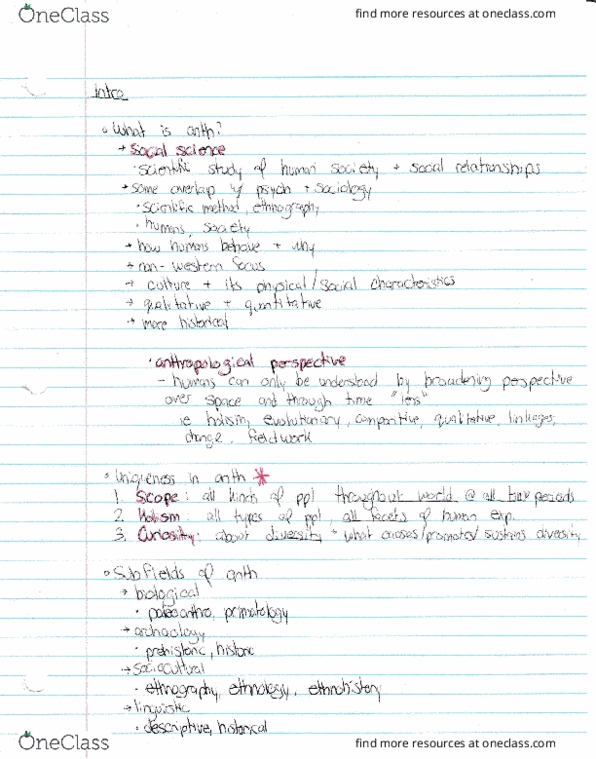 OneClass
find more resources at oneclass.com
Intro
What is anth?
→ Social science
· scientific study of human society + social relationships
→ some overlap w/ psych + sociology
· scientific method, ethnography
· humans, society
→ how humans behave + why
→ non-western focus
→ culture + its physical/social characteristics
→ qualitative + quantitative
→ more historical
· anthropological perspective
- humans can only be understood by broadening perspective
over space and through time "lens"
ie holism, evolutionary, comparitive, qualitative, linkages,
change, fieldwork
Uniqueness in anth *
1. Scope: all kinds of ppl throughout world @ all time periods
2. Holism: all types of ppl, all facets of human exp.
3. Curiosity: about diversity + what causes/promotes/sustains diversity
Subfields of anth
→ biological
· paleoanthro, primatology
→ archaeology
· prehistoric, historic
→ sociocultural
· ethnography, ethnology, ethnohistory
→ linguistic
· descriptive, historical
OneClass
find more resources at oneclass.com